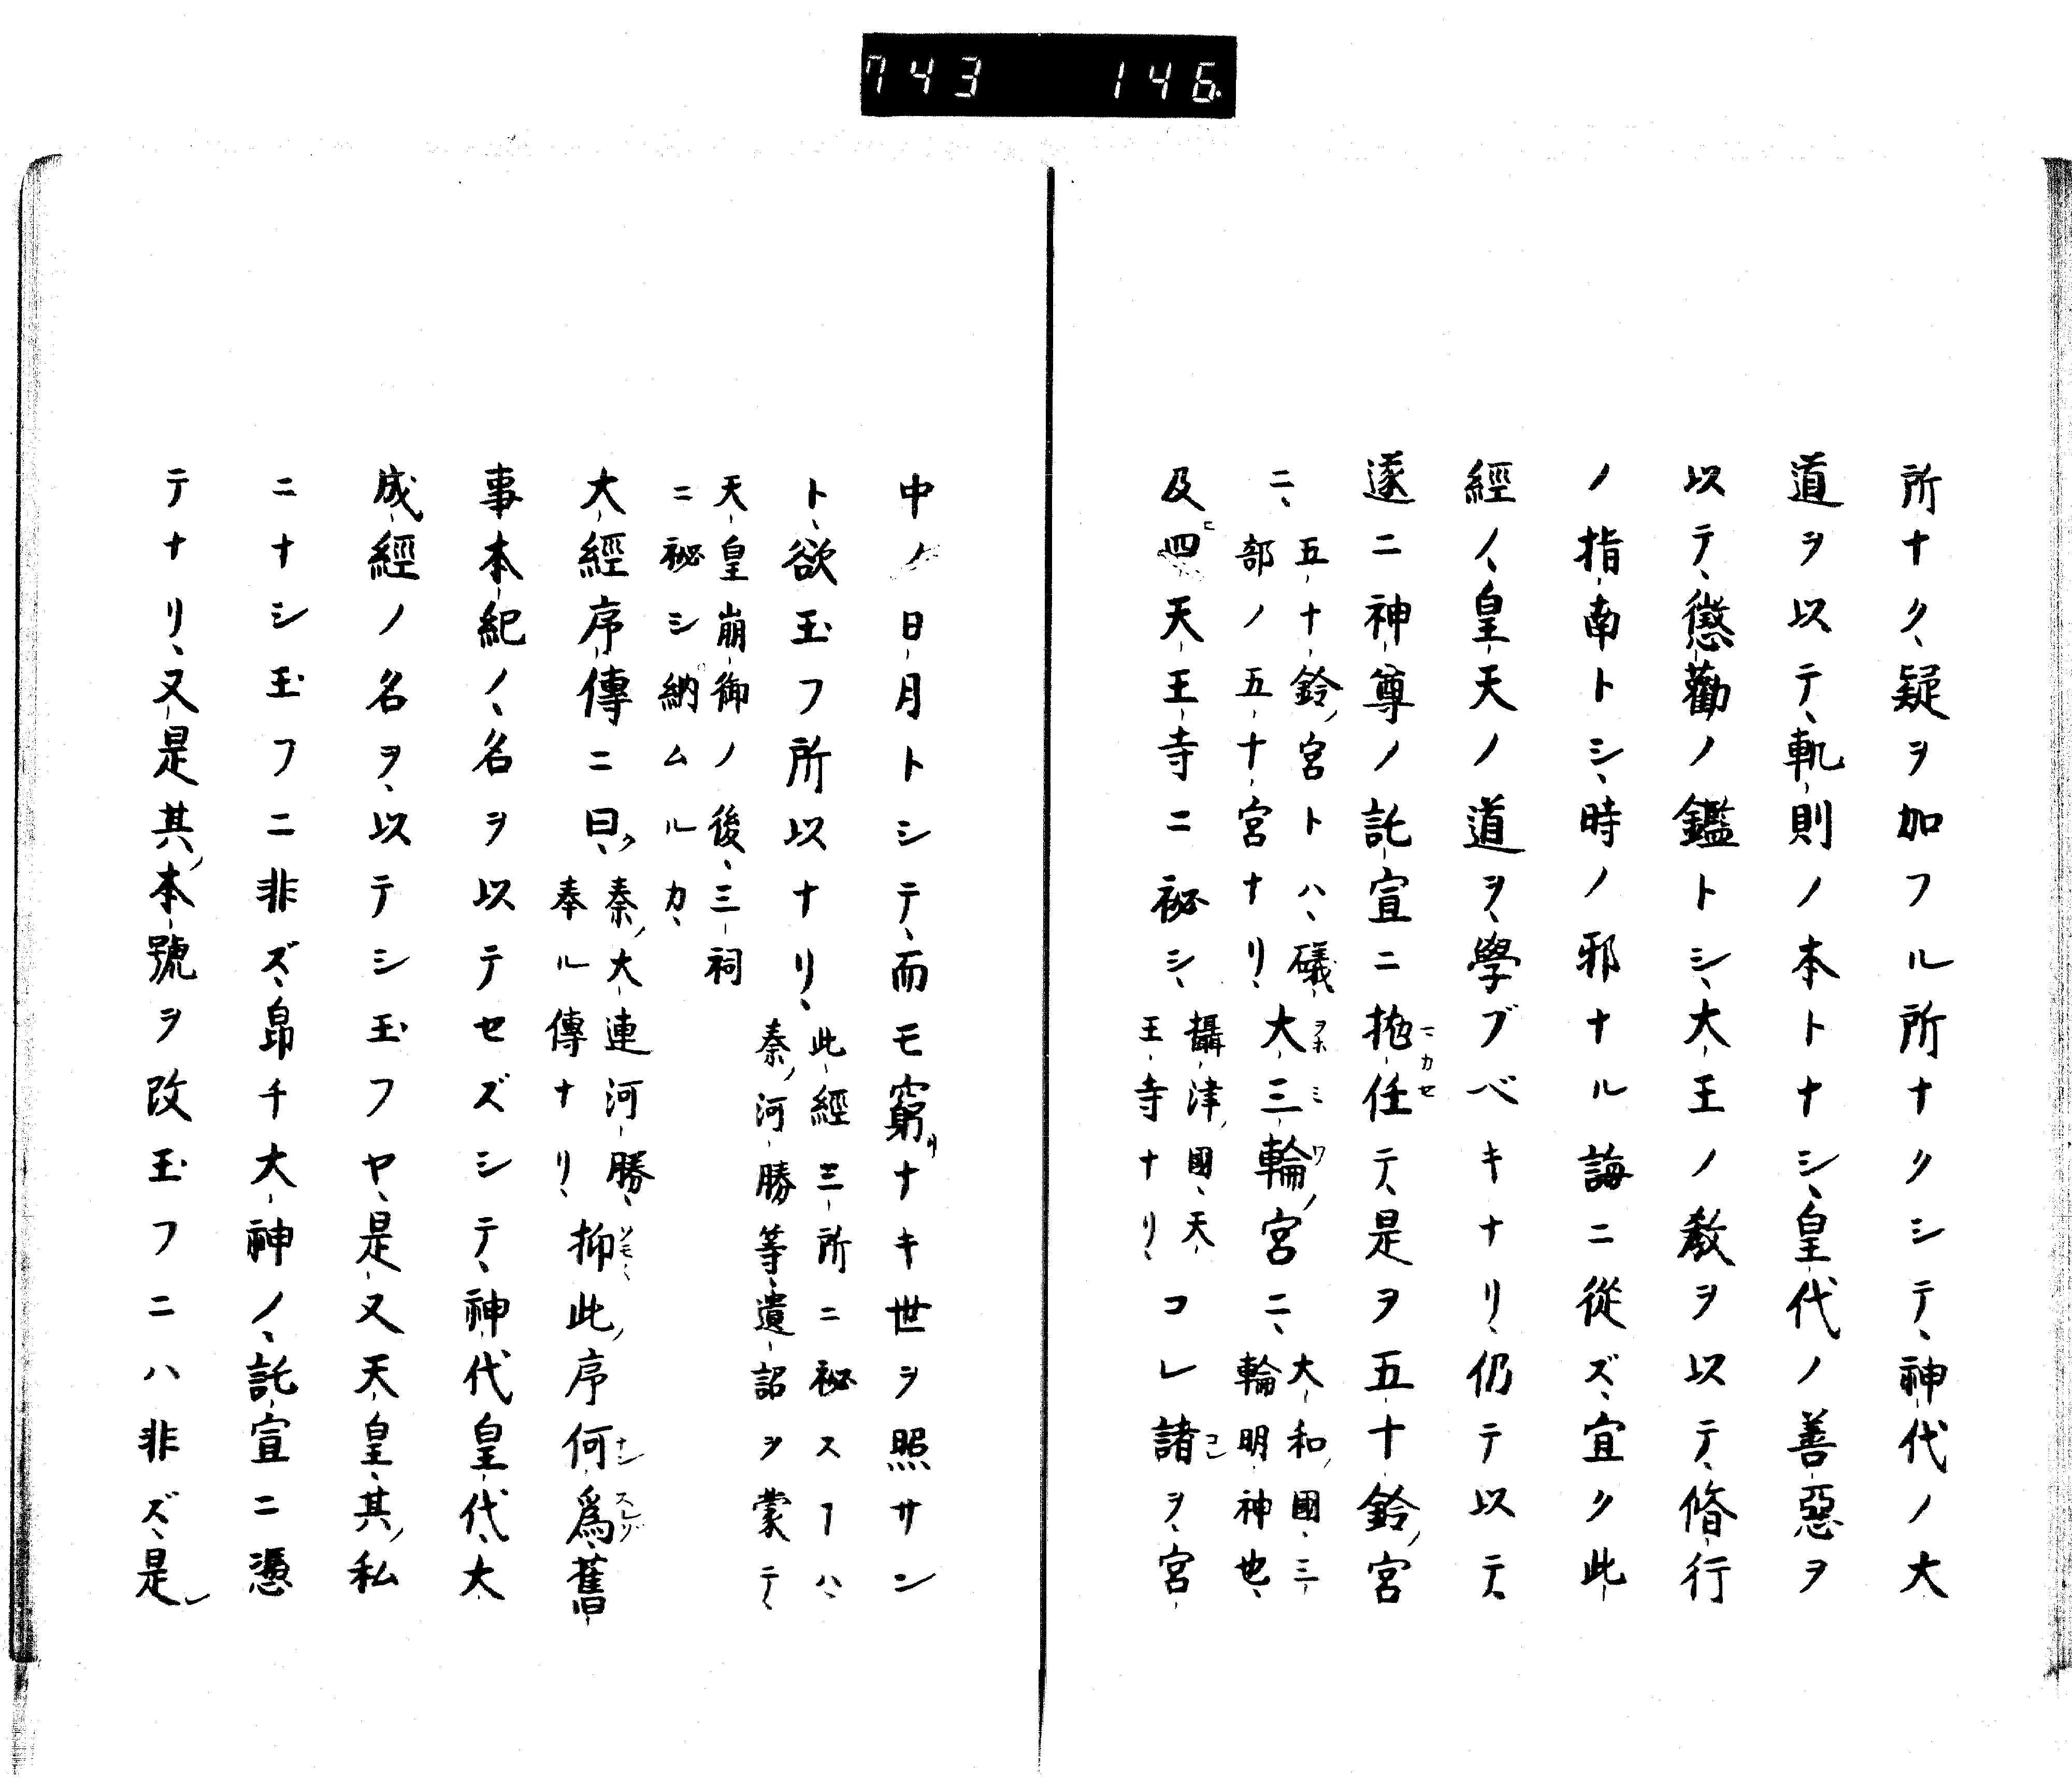 743 146
所ナク、疑ヲ加フル所ナクシテ、神代ノ大
道ヲ以テ、軌則ノ本トナシ、皇代ノ善惡ヲ
以テ、懲勸ノ鑑トシ、大王ノ教ヲ以テ、脩行
ノ指南トシ、時ノ邪ナル誨ニ從ズ、宜ク此
經ノ、皇天ノ道ヲ、學ブベキナリ、仍テ以テ、
遂ニ神尊ノ託宣ニ拖任テ、是ヲ五十鈴ノ宮
ニ、五十鈴ノ宮トハ、礒部ノ五十宮ナリ、大三輪ノ宮ニ、大和ノ國、三輪明神也、
及ヒ四天王寺ニ祕シ、攝津ノ國、天王寺ナリ、コレ諸ヲ、宮
中ノ日月トシテ、而モ窮リナキ世ヲ照サン
ト、欲玉フ所以ナリ、此經三所ニ祕スフハ、秦ノ河勝等、遺詔ヲ蒙テ、
天皇崩御ノ後、三祠ニ祕シ納ムルカ、
大經序傳ニ曰ク、秦ノ大連河勝、奉ル傳ナリ、抑此ノ序何爲、舊
事本紀ノ、名ヲ以テセズシテ、神代皇代、大
成經ノ名ヲ、以テシ玉フヤ、是又天皇、其ノ私
ニナシ玉フニ非ズ、皍チ大神ノ、託宣ニ憑
テナリ、又是其ノ本號ヲ改玉フニハ非ズ、是レ